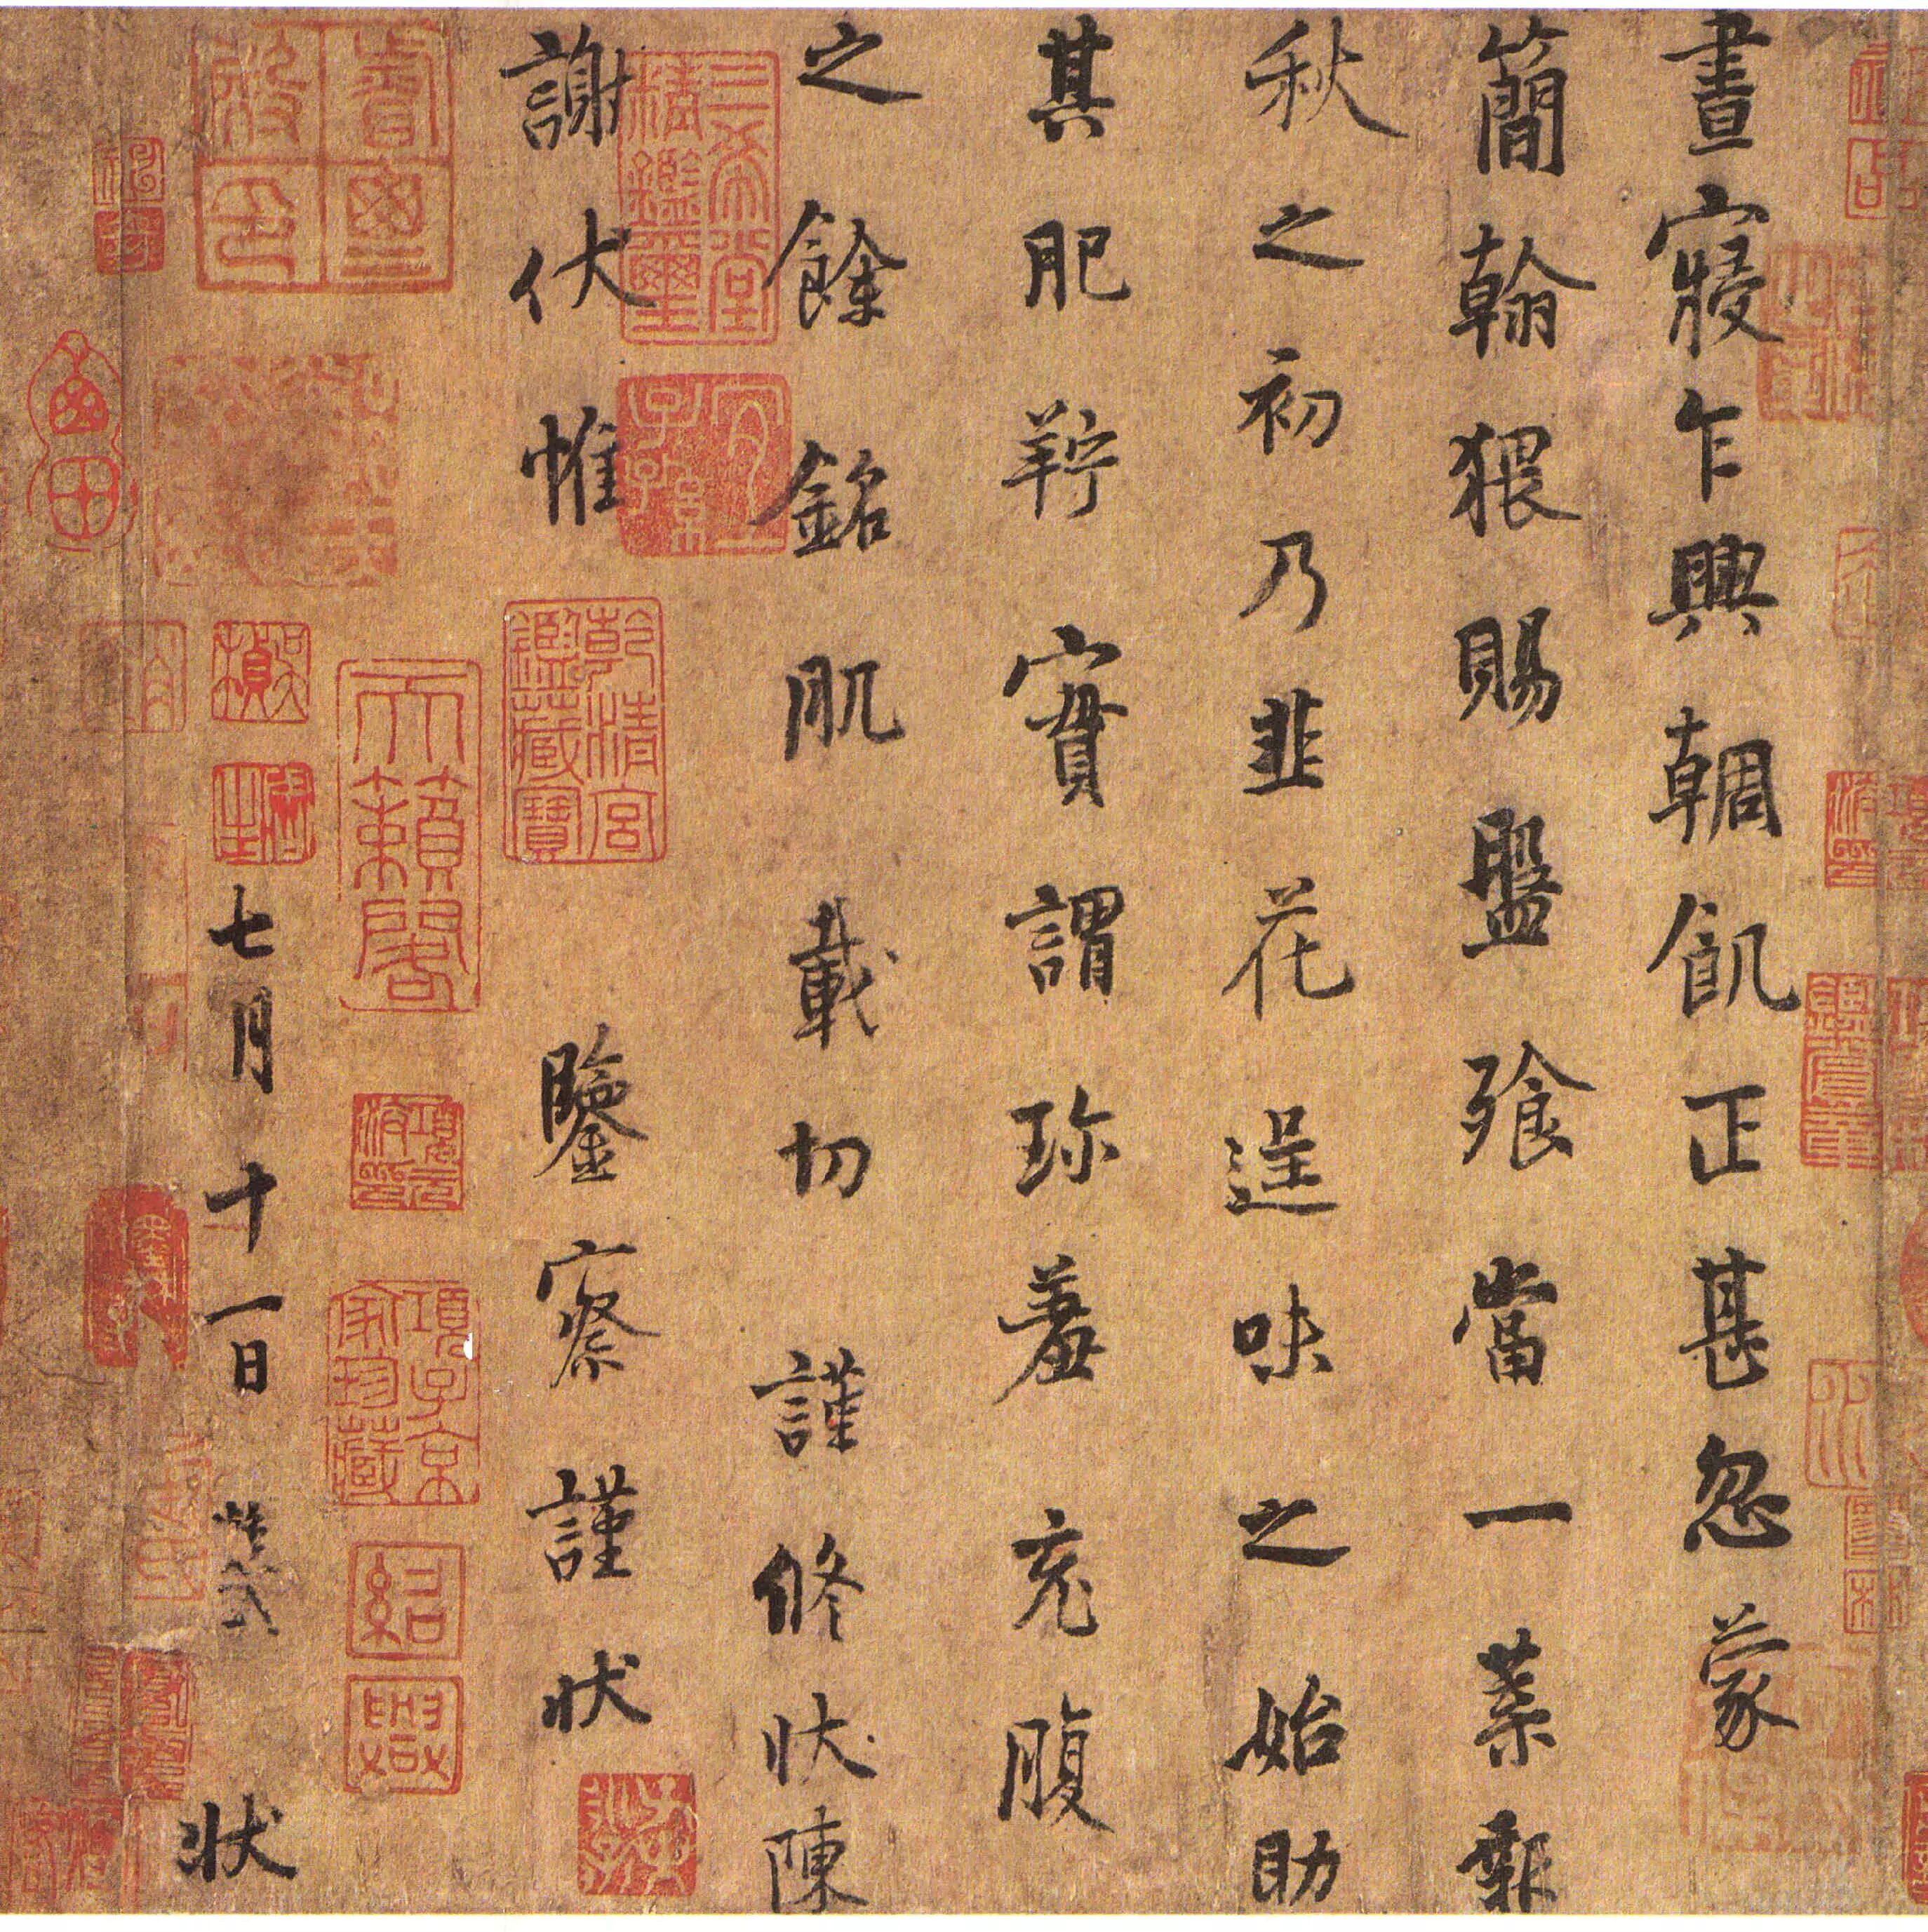 晝寢乍興輖飢正甚忽蒙
簡翰猥賜盤飱當一葉報
秋之初乃韭花逞味之始助
其肥羜實謂珍羞充腹
之餘銘肌載切謹修狀陳
謝伏惟鑒察謹狀
七月十一日凝式狀
三希堂精鑑璽
宜子孫
乾清宮鑑藏寶
天籟閣
項元汴印
項子京家珍藏
紹興